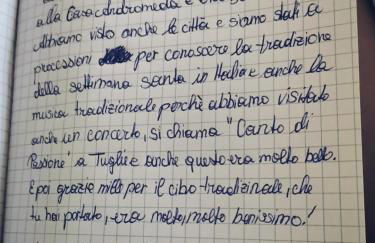 alla Casa Andromeda e
abbiamo visto anche le città e siamo stati a
processioni per conoscere la tradizione
della settimana santa in Italia e anche la
musica tradizionale perchè abbiamo visitato
anche un concerto, si chiama "Canto di
Passione a Tuglie e anche questo era molto bello.
E poi grazie mille per il cibo tradizinale, che
tu hai portato, era molto, molto benissimo!